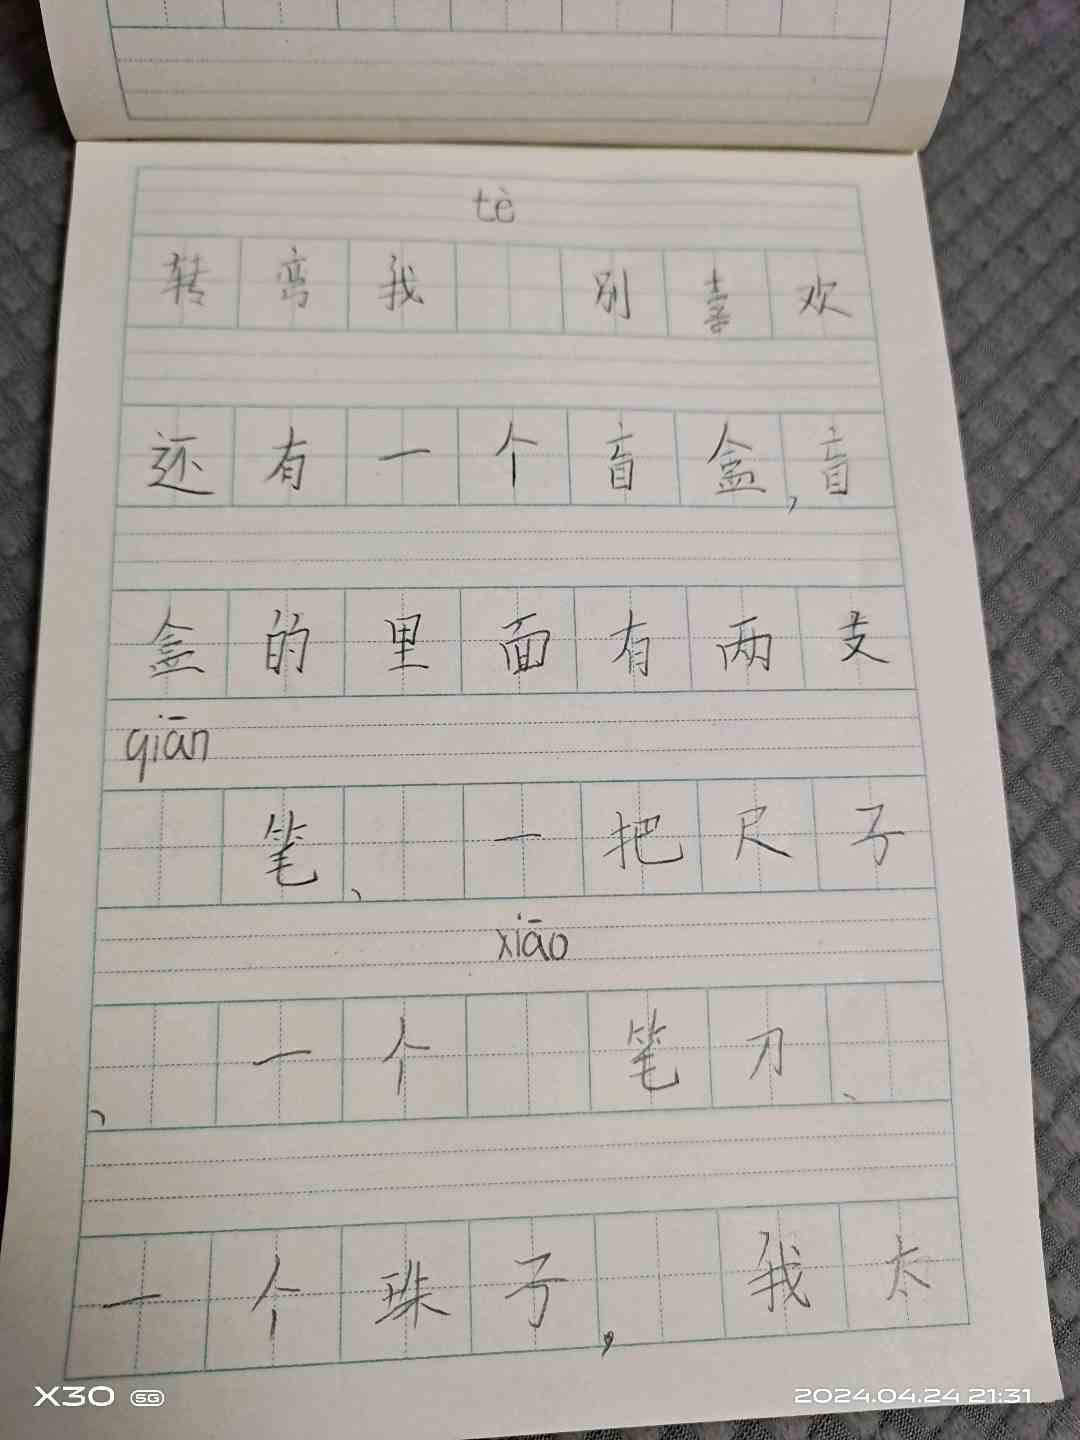 tè
转弯我 别喜欢
还有一个盲盒,盲
盒的里面有两支
qiān
笔、一把尺子
xiāo
、一个 笔刀、
一个珠子,我太
X30 5G
2024.04.24 21:31